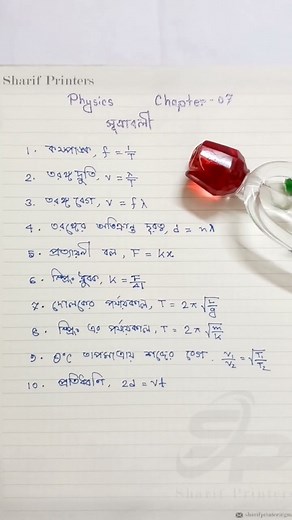 Sharif Printers
Physics Chapter-07
সূত্রাবলী
1. কম্পাঙ্ক, f = 1/T
2. তরঙ্গ দ্রুতি, v = λ/T
3. তরঙ্গ বেগ, v = fλ
4. তরঙ্গের অতিক্রান্ত দূরত্ব, d = nλ
5. প্রত্যায়নী বল, F = kx
6. স্প্রিং ধ্রুবক, k =
7. দোলকের পর্যায়কাল, T = 2π√L/g
8. স্প্রিং এর পর্যায়কাল, T = 2π√m/k
9. θ°C তাপমাত্রায় শব্দের বেগ. v₁/v₂ = √T₁/T₂
10. প্রতিধ্বনি, 2d = vt
Sharif Printers